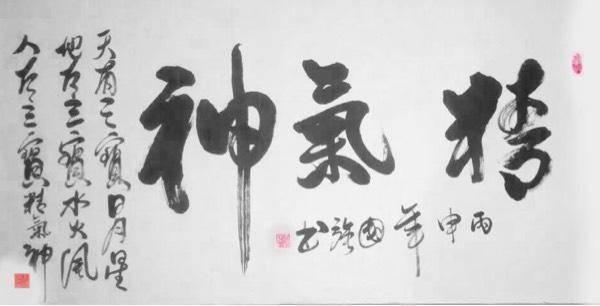 精氣神
丙申年國強书
天有三寶日月星
地有三寶水火風
人有三寶精氣神